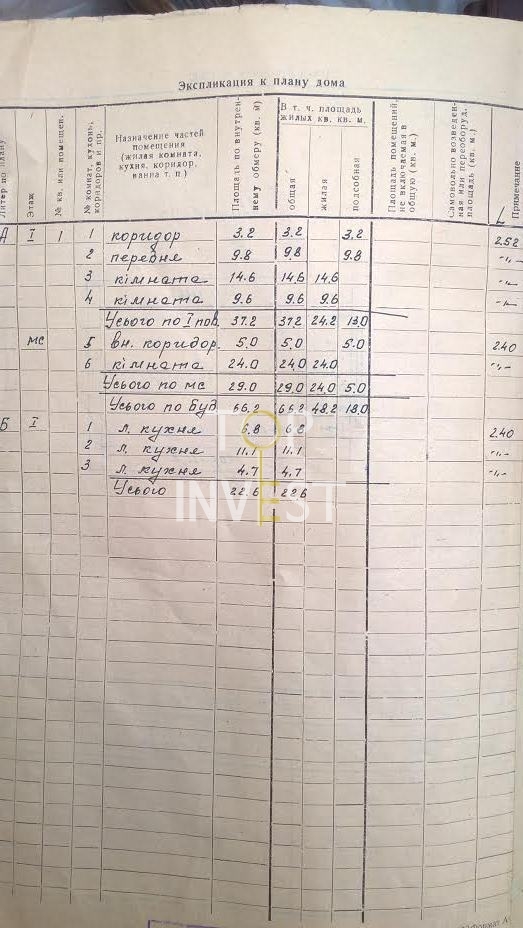 Экспликация к плану дома
Литер по плану
Этаж
№ кв. или помещен.
№ комнат, кухонь, коридоров и пр.
Назначение частей помещения (жилая комната, кухня, коридор, ванна т. п.)
Площадь по внутреннему обмеру (кв. м)
В т. ч. площадь жилых кв. кв. м.
общая
жилая
подсобная
Площадь помещений, не включаемая в общую (кв. м.)
Самовольно возведенная или переоборуд. площадь (кв. м.)
Примечание
А I 1 1 коридор 3.2 3.2 3.2 2.52
2 передня 9.8 9.8 9.8 -"-
3 кімната 14.6 14.6 14.6 -"-
4 кімната 9.6 9.6 9.6 -"-
Усього по I пов. 37.2 37.2 24.2 13.0
мс 5 вн. коридор. 5.0 5.0 5.0 2.40
6 кімната 24.0 24.0 24.0 -"-
Усього по мс 29.0 29.0 24.0 5.0
Усього по буд 66.2 66.2 48.2 18.0
Б I 1 л. кухня 6.8 6.8 2.40
2 л. кухня 11.1 11.1 -"-
3 л. кухня 4.7 4.7 -"-
Усього 22.6 22.6
TOP
INVEST
Формат А